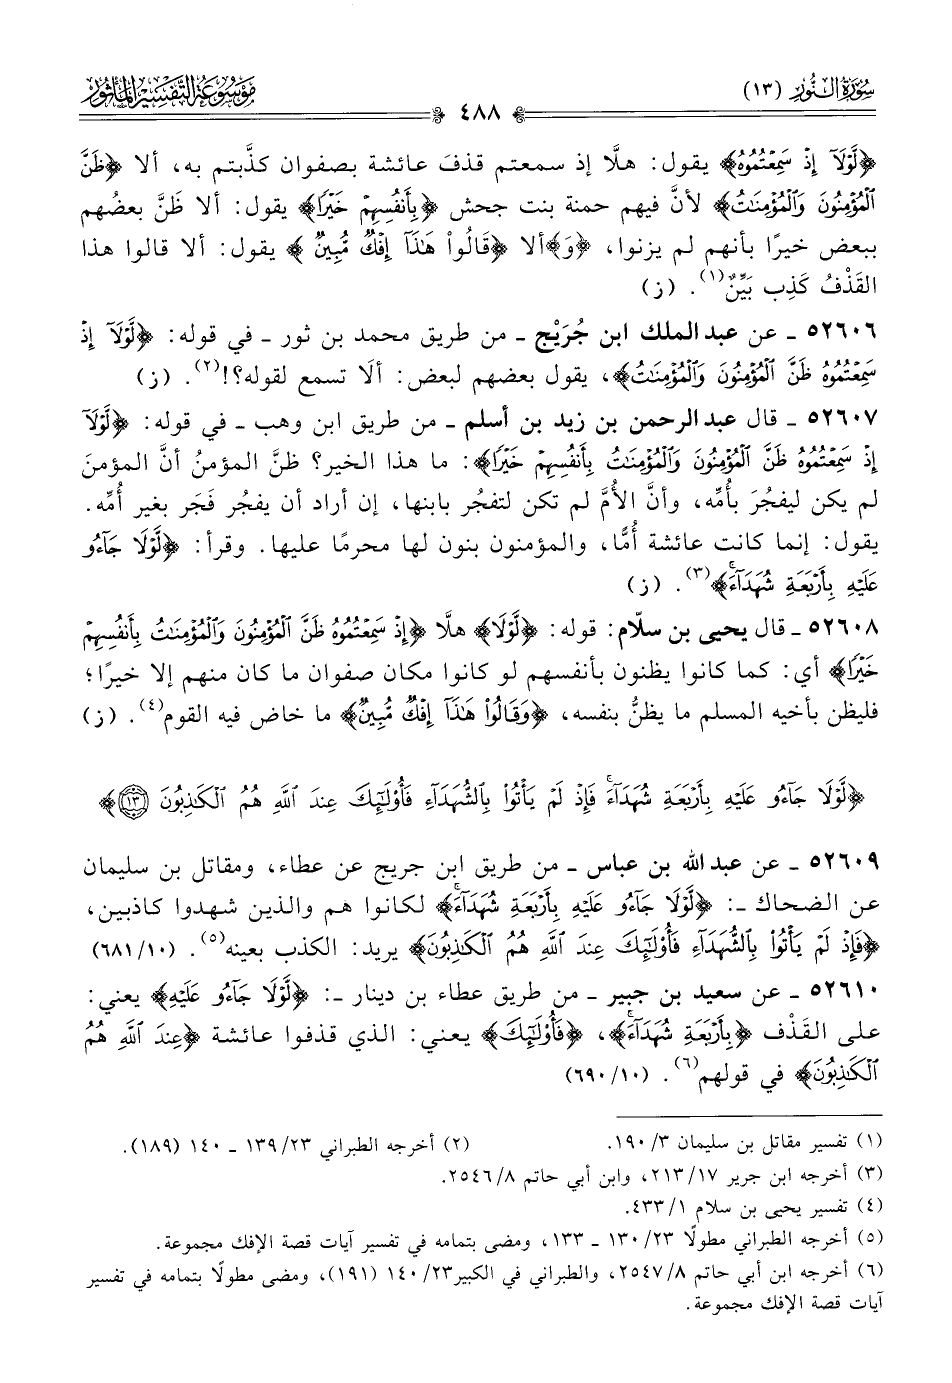 سُورَةُ النُّور (١٣)
٤٨٨
مَوْسُوعَة التَّفْسِير المَأْثُور
﴿لَّوْلَآ إِذْ سَمِعْتُمُوهُ﴾ يقول: هلَّا إذ سمعتم قذفَ عائشة بصفوان كذَّبتم به، ألا ﴿ظَنَّ
ٱلْمُؤْمِنُونَ وَٱلْمُؤْمِنَٰتُ﴾ لأنَّ فيهم حمنة بنت جحش ﴿بِأَنفُسِهِمْ خَيْرًا﴾ يقول: ألا ظَنَّ بعضُهم
ببعض خيرًا بأنهم لم يزنوا، ﴿وَ﴾ألا ﴿قَالُوا۟ هَٰذَآ إِفْكٌ مُّبِينٌ﴾ يقول: ألا قالوا هذا
القَذْفُ كَذِب بَيِّنٌ(١). (ز)
٥٢٦٠٦ ـ عن عبد الملك ابن جُرَيْج ـ من طريق محمد بن ثور ـ في قوله: ﴿لَّوْلَآ إِذْ
سَمِعْتُمُوهُ ظَنَّ ٱلْمُؤْمِنُونَ وَٱلْمُؤْمِنَٰتُ﴾، يقول بعضهم لبعض: ألَا تسمع لقوله؟!(٢). (ز)
٥٢٦٠٧ ـ قال عبد الرحمن بن زيد بن أسلم ـ من طريق ابن وهب ـ في قوله: ﴿لَّوْلَآ
إِذْ سَمِعْتُمُوهُ ظَنَّ ٱلْمُؤْمِنُونَ وَٱلْمُؤْمِنَٰتُ بِأَنفُسِهِمْ خَيْرًا﴾: ما هذا الخير؟ ظنَّ المؤمنُ أنَّ المؤمنَ
لم يكن ليفجُرَ بأُمِّه، وأنَّ الأُمَّ لم تكن لتفجُر بابنها، إن أراد أن يفجُر فَجَر بغير أُمِّه.
يقول: إنما كانت عائشة أُمًّا، والمؤمنون بنون لها محرمًا عليها. وقرأ: ﴿لَّوْلَا جَآءُو
عَلَيْهِ بِأَرْبَعَةِ شُهَدَآءَۚ﴾(٣). (ز)
٥٢٦٠٨ ـ قال يحيى بن سلّام: قوله: ﴿لَّوْلَآ﴾ هلَّا ﴿إِذْ سَمِعْتُمُوهُ ظَنَّ ٱلْمُؤْمِنُونَ وَٱلْمُؤْمِنَٰتُ بِأَنفُسِهِمْ
خَيْرًا﴾ أي: كما كانوا يظنون بأنفسهم لو كانوا مكان صفوان ما كان منهم إلا خيرًا؛
فليظن بأخيه المسلم ما يظنُّ بنفسه، ﴿وَقَالُوا۟ هَٰذَآ إِفْكٌ مُّبِينٌ﴾ ما خاض فيه القوم(٤). (ز)
﴿لَّوْلَا جَآءُو عَلَيْهِ بِأَرْبَعَةِ شُهَدَآءَۚ فَإِذْ لَمْ يَأْتُوا۟ بِٱلشُّهَدَآءِ فَأُو۟لَٰٓئِكَ عِندَ ٱللَّهِ هُمُ ٱلْكَٰذِبُونَ (١٣)﴾
٥٢٦٠٩ ـ عن عبد الله بن عباس ـ من طريق ابن جريج عن عطاء، ومقاتل بن سليمان
عن الضحاك ـ: ﴿لَّوْلَا جَآءُو عَلَيْهِ بِأَرْبَعَةِ شُهَدَآءَۚ﴾ لكانوا هم والذين شهدوا كاذبين،
﴿فَإِذْ لَمْ يَأْتُوا۟ بِٱلشُّهَدَآءِ فَأُو۟لَٰٓئِكَ عِندَ ٱللَّهِ هُمُ ٱلْكَٰذِبُونَ﴾ يريد: الكذب بعينه(٥). (٦٨١/١٠)
٥٢٦١٠ ـ عن سعيد بن جبير ـ من طريق عطاء بن دينار ـ: ﴿لَّوْلَا جَآءُو عَلَيْهِ﴾ يعني:
على القَذْف ﴿بِأَرْبَعَةِ شُهَدَآءَۚ﴾، ﴿فَأُو۟لَٰٓئِكَ﴾ يعني: الذي قذفوا عائشة ﴿عِندَ ٱللَّهِ هُمُ
ٱلْكَٰذِبُونَ﴾ في قولهم(٦). (٦٩٠/١٠)
(١) تفسير مقاتل بن سليمان ١٩٠/٣. (٢) أخرجه الطبراني ١٣٩/٢٣ ـ ١٤٠ (١٨٩).
(٣) أخرجه ابن جرير ٢١٣/١٧، وابن أبي حاتم ٢٥٤٦/٨.
(٤) تفسير يحيى بن سلام ٤٣٣/١.
(٥) أخرجه الطبراني مطولًا ١٣٠/٢٣ ـ ١٣٣، ومضى بتمامه في تفسير آيات قصة الإفك مجموعة.
(٦) أخرجه ابن أبي حاتم ٢٥٤٧/٨، والطبراني في الكبير١٤٠/٢٣ (١٩١)، ومضى مطولًا بتمامه في تفسير
آيات قصة الإفك مجموعة.